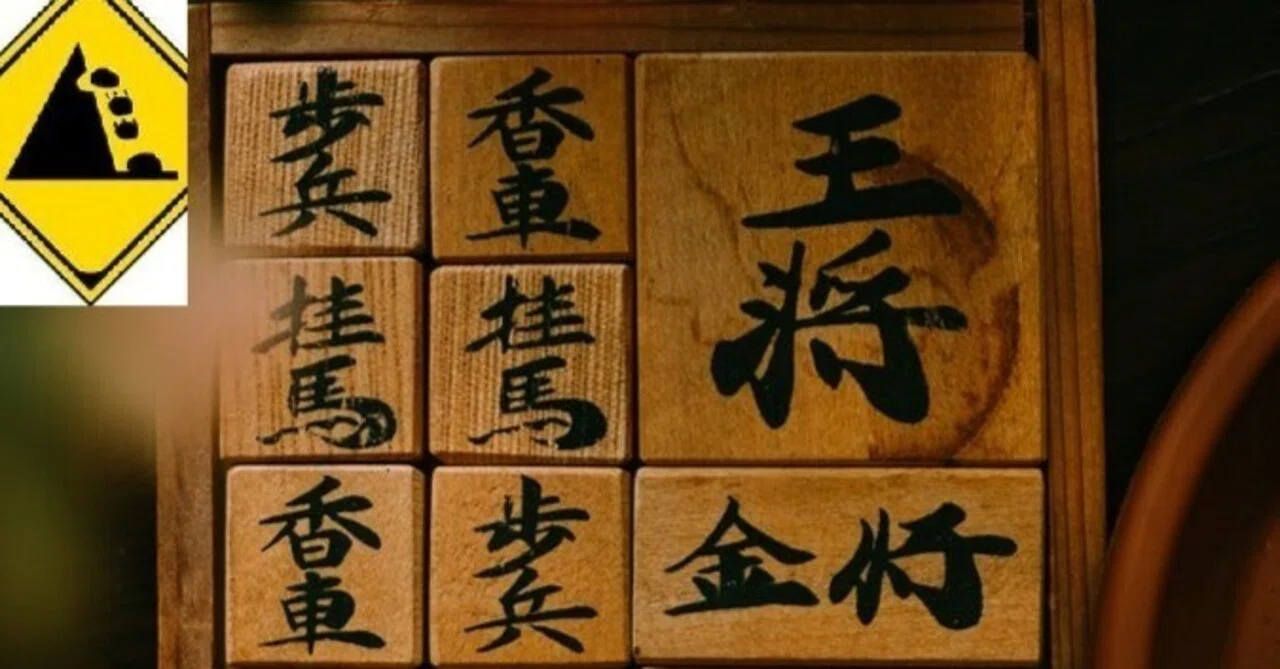 歩兵
香車
王将
桂馬
桂馬
香車
歩兵
金将